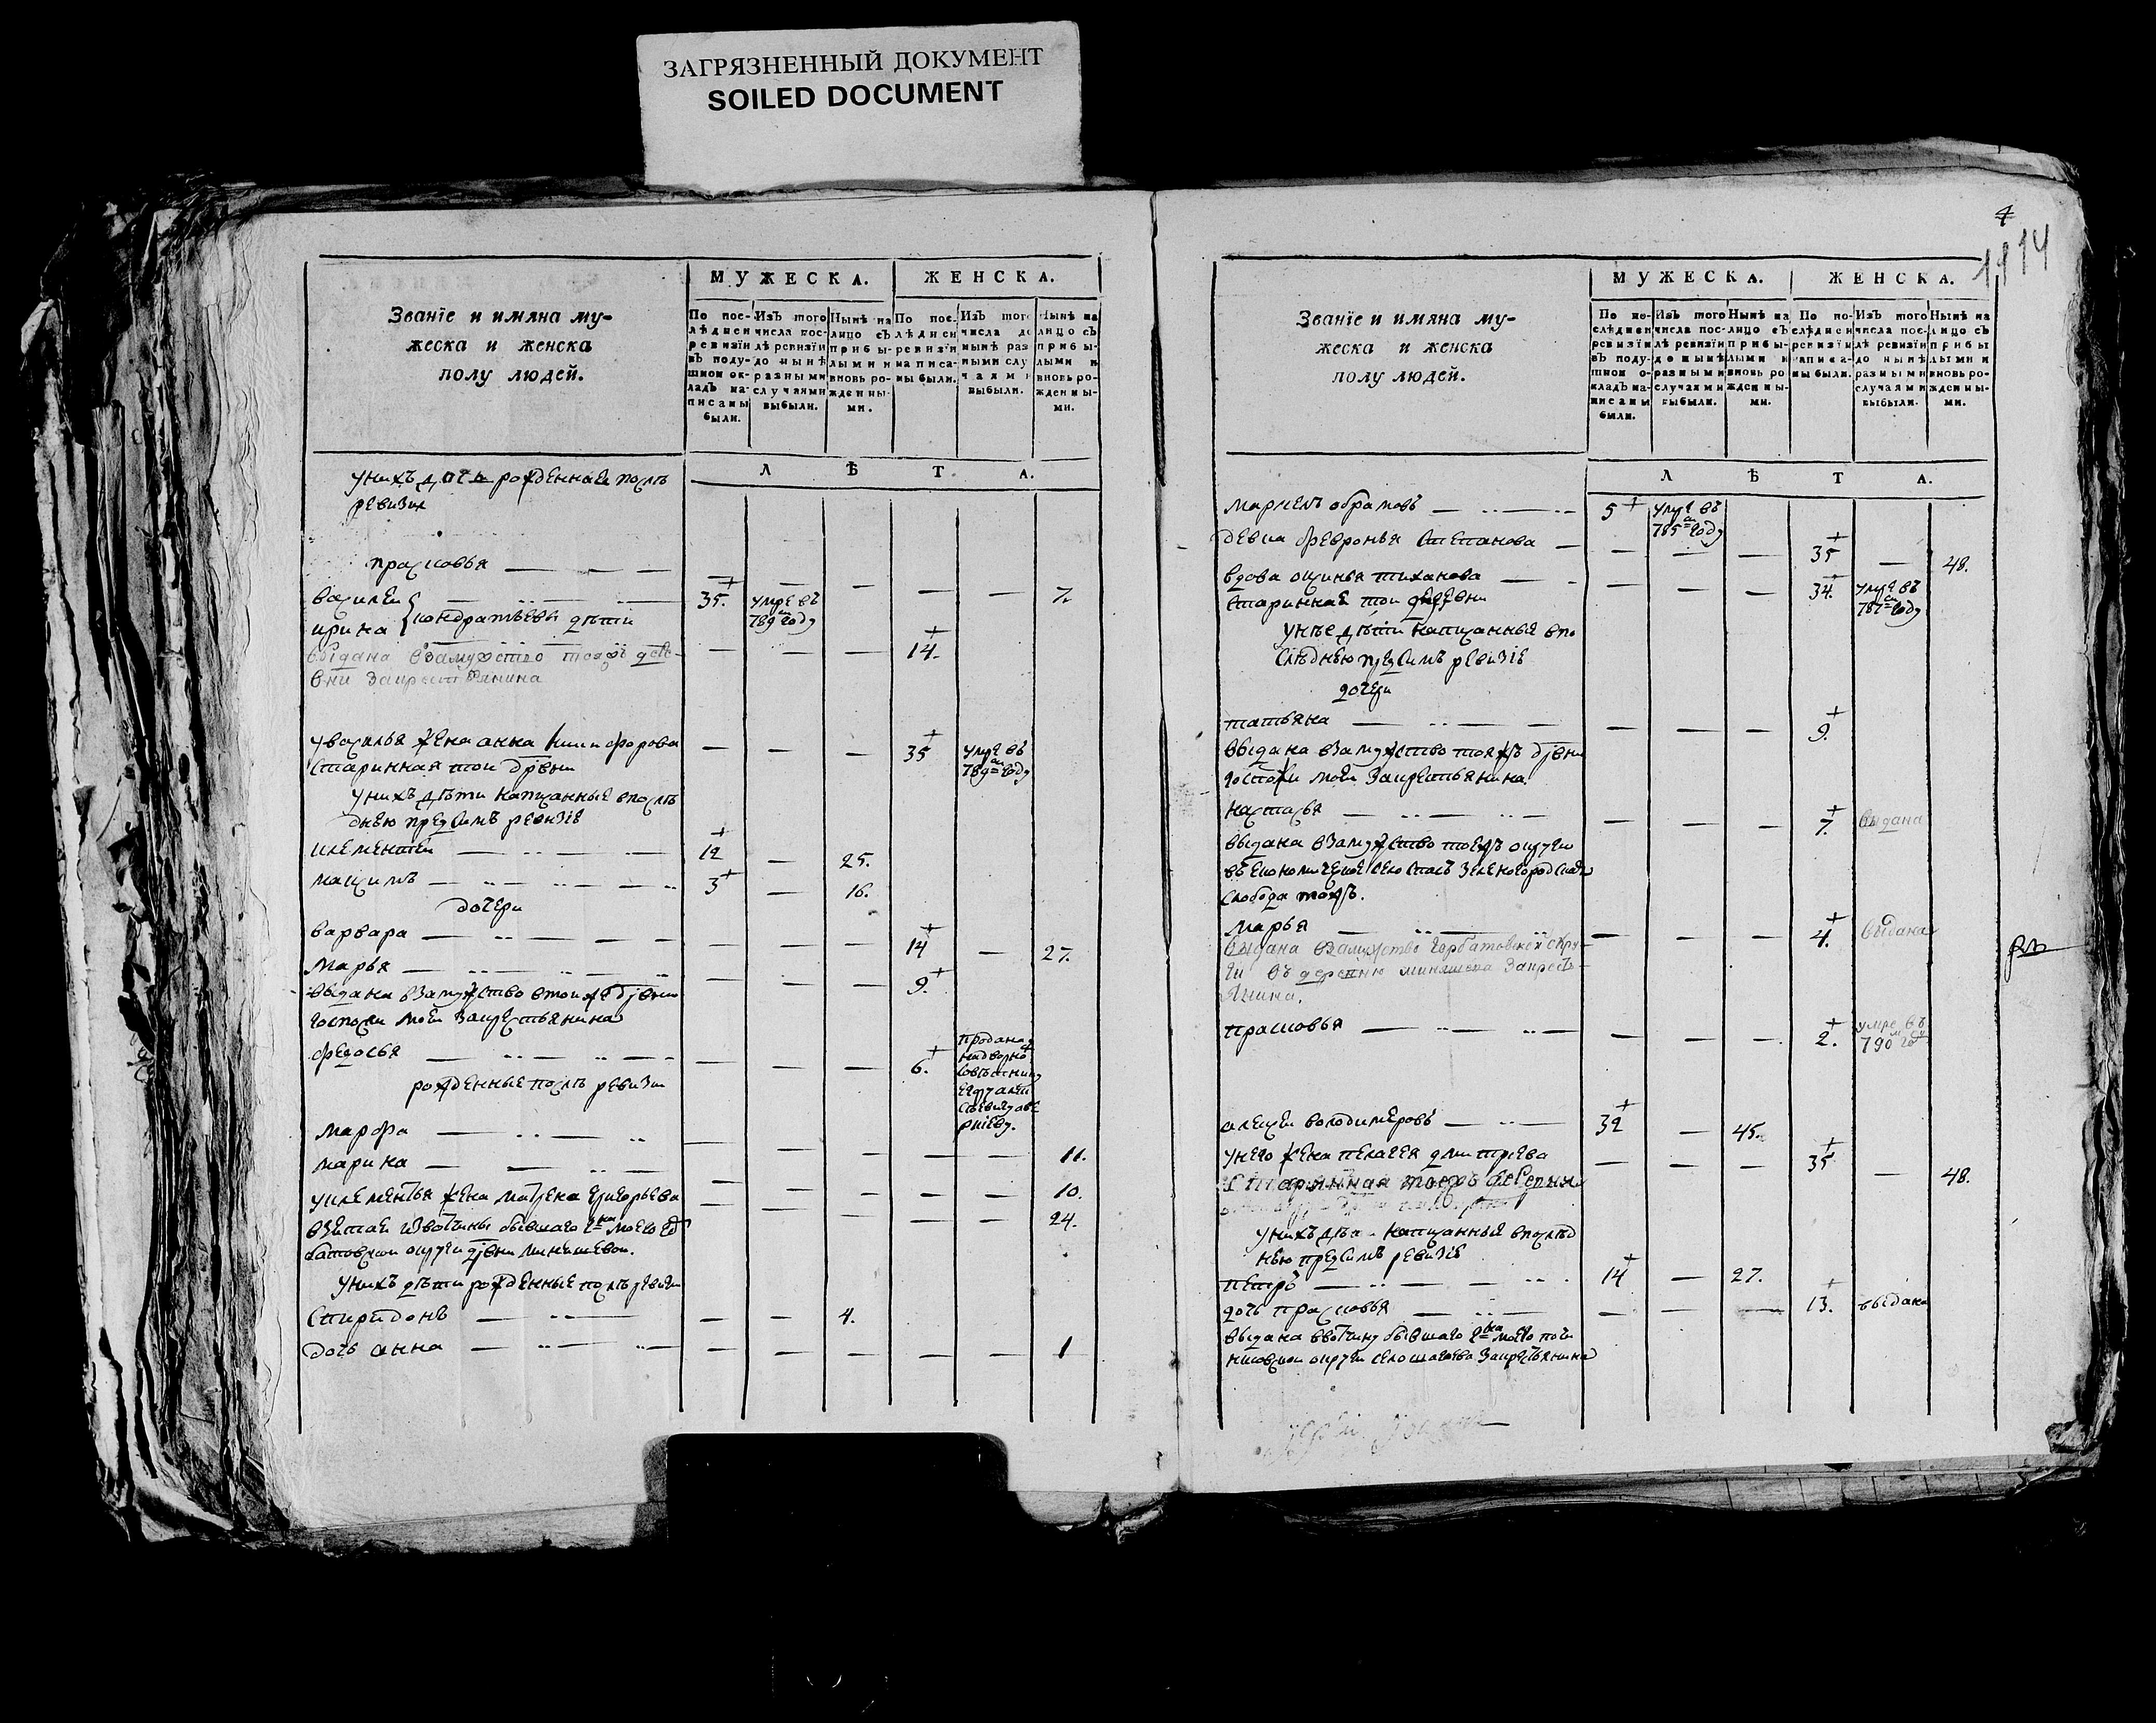 ЗАГРЯЗНЕННЫЙ ДОКУМЕНТ
SOILED DOCUMENT
МУЖЕСКА. ЖЕНСКА.
Званїе и имяна му-
жеска и женска
полу людей.
По пос-
лѣдней
ревизїи
въ поду-
шной ок-
ладъ на-
писаны
были.
Изъ того
числа пос-
лѣ ревизїи
до нынѣ
разными
случаями
выбыли.
Нынѣ на
лицо съ
прибы-
лыми и
вновь ро-
жденны-
ми.
По пос-
лѣдней
ревизїи
написа-
ны были.
Изъ того
числа до
нынѣ раз
ными слу
чаями
выбыли.
Нынѣ на
лицо съ
прибы-
лыми и
вновь ро-
жденны-
ми.
ЛѢТА.
унихъ дочь рожденная послѣ
ревизии
прасковья 7.
василеи 35. умре въ 789м году
ирина кондратьевы дѣти 14.
выдана взамужство тояжъ дере-
вни закрестьянина
увасилья жена анна никифорова 35 умре въ 789м году
старинная тои дрвни
унихъ дѣти написанныя впослѣ
днею предсимъ ревизіе
клементеи 12 25.
максимъ 3 16.
дочери
варвара 14 27.
марья 9.
выдана взамужство втоиже дрвни
госпожи моеи закрестьянина
федосья 6. продана
надворно
рожденные послѣ ревизии
марфа 11.
марина 10.
уклементья жена матрена григорьева 24.
взятая извотчины бывшаго гна моего
округи дрвни
унихъ дѣти рожденные послѣ ревизии
спиридонъ 4.
дочь анна 1
4
1914
МУЖЕСКА. ЖЕНСКА.
Званїе и имяна му-
жеска и женска
полу людей.
По по-
слѣдней
ревизїи
въ поду-
шной о-
кладъ на-
писаны
были.
Изъ того
числа пос-
лѣ ревизїи
до нынѣ
разными
случаями
выбыли.
Нынѣ на
лицо съ
прибы-
лыми и
вновь ро
жденны-
ми.
По по-
слѣдней
ревизїи
написа-
ны были.
Изъ того
числа пос-
лѣ ревизїи
до нынѣ
разными
случаями
выбыли.
Нынѣ на
лицо съ
прибы
лыми и
вновь ро-
жденны-
ми.
ЛѢТА.
маркелъ абрамовъ 5 умре въ 785м году
девка февронья степанова 35 48.
вдова аксинья тиханова 34. умре въ 787м году
старинная тои деревни
унѣе дѣти написанныя впо
слѣднею предсимъ ревизіе
дочери
татьяна 9.
выдана взамужство тояжъ дрвни
госпожи моеи закрестьянина.
настасья 7. выдана
выдана взамужство тоежъ округи
въ економическое село
слобода тожъ.
марья 4. выдана
выдана взамужство горбатовской окру-
ги въ деревню закресть-
янина.
прасковья 2. умре въ 790м году
алексеи володимеровъ 32 45.
унего жена пелагея дмитрева 35 48.
старинная тоежъ деревни
унихъ дѣти написанныя впослѣд
нею предсимъ ревизіе
петръ 14 27.
дочь прасковья 13. выдана
выдана ввотчину бывшаго гна моего
округи село закрестьянина